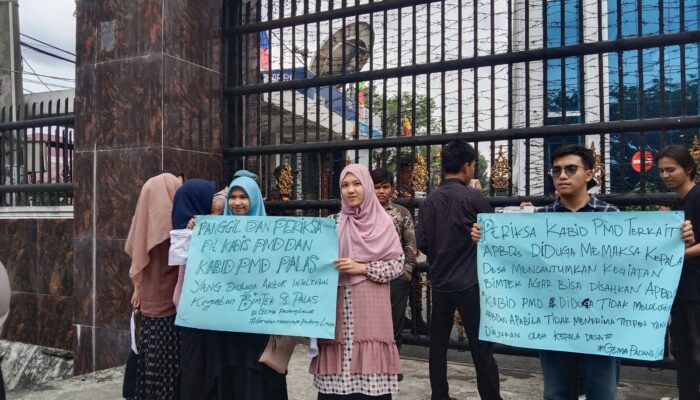 PANGGIL DAN PERIKSA
PLT KADIS PMD DAN
KABID PMD PALAS
YANG DIDUGA AKTOR INTELEKTUAL
KEGIATAN BIMTEK & PALAS
#GEMA PADANG LAWAS
PERIKSA KABID PMD TERKAIT
APBDes DIDUGA MEMAKSA KEPALA
DESA MENCANTUMKAN KEGIATAN
BIMTEK AGAR BISA DISAHKAN APBDes
KABID PMD DIDUGA TIDAK
APBDes, APABILA TIDAK MENERIMA TITIPAN YANG
DIAJUKAN OLEH KEPALA DESA
#GEMA PADANG LAWAS